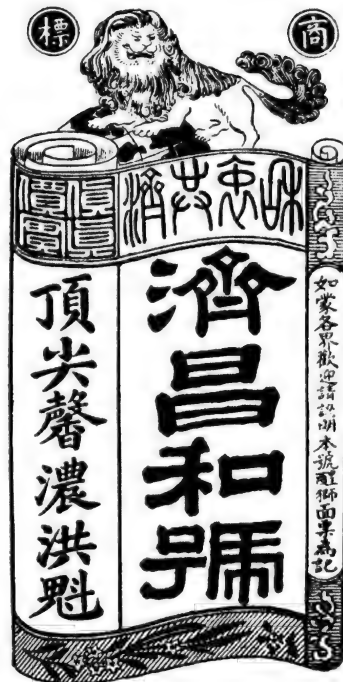 商標
和衷共濟
貨真
價實
如蒙各界歡迎請認明本號醒獅面票為記
濟昌和號
頂尖馨濃洪魁